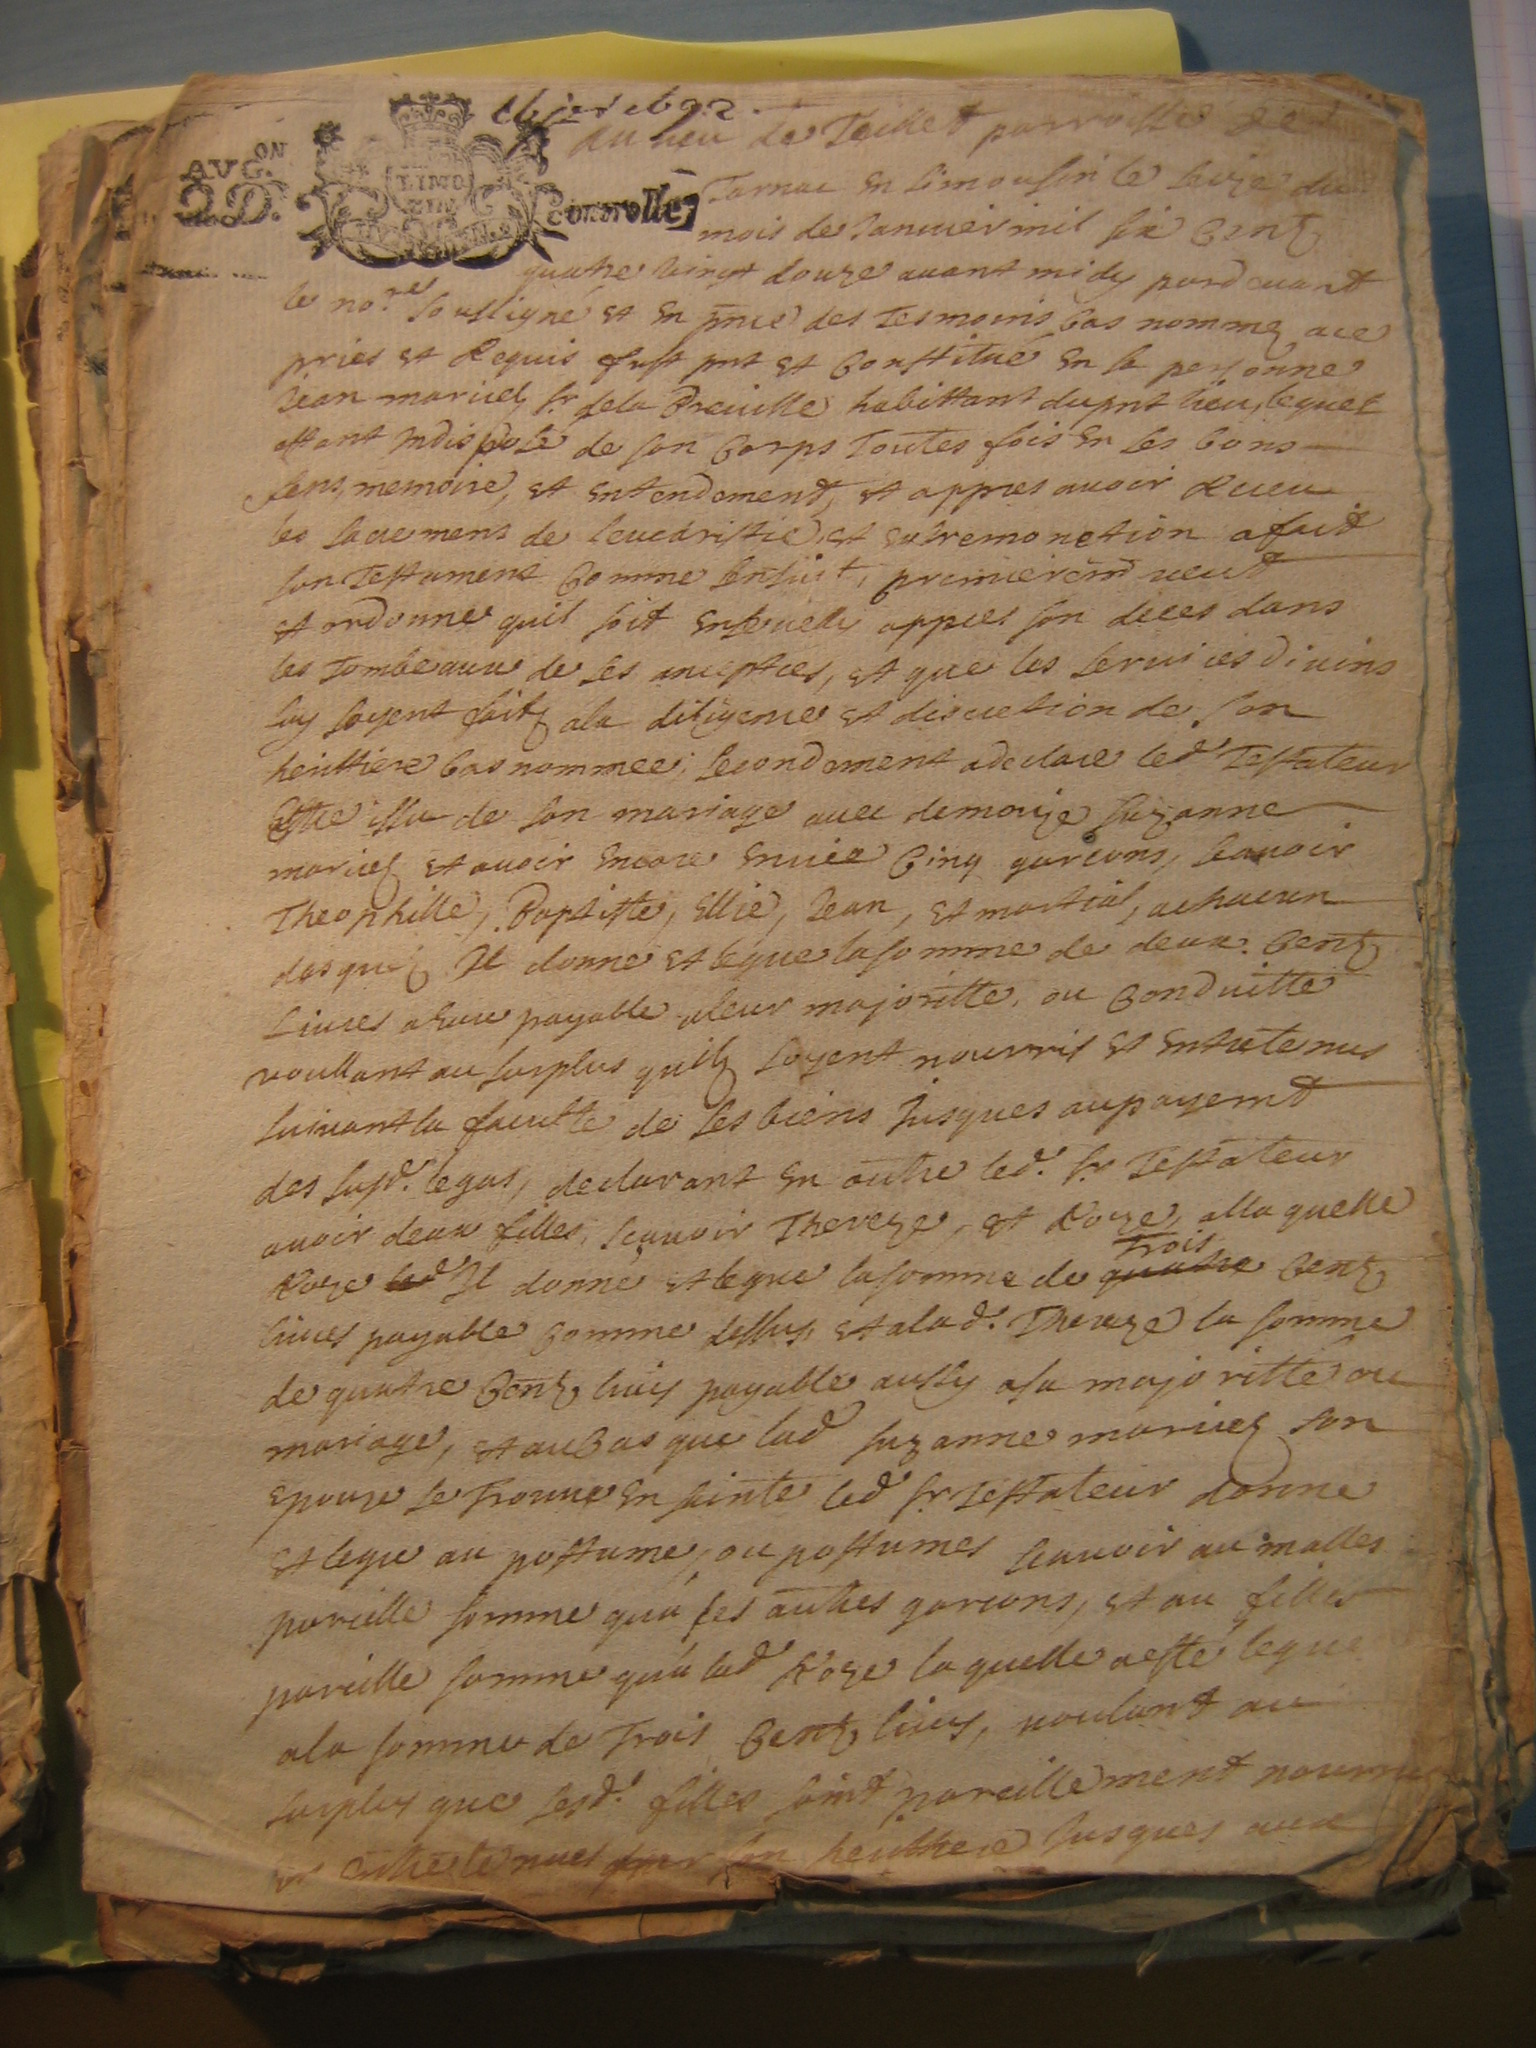 16 jer 1692
AVG.ON
2D.
LIMO
ZIN
controllé
Au lieu de Teillet parroisse de
Tarnac en Limousin le seize du
mois de Janvier mil six centz
quatre vingt douze avant midy pardevant
le no.re soussigné et en pnce des tesmoins bas nommez ace
pries et requis fust pnt et constitué en sa personne
Jean mariuel, sr. dela Breuille habittant dupnt lieu, lequel
estant Indisposé de son corps toutes fois en ses bons
sens, memoire, et entendement, et appres avoir receu
les sacremens de leucaristie, et extremonction a fait
son testament comme sensuit, premieremt veut
et ordonne quil soit ensevelly appres son deces dans
les tombeaux de ses ancestres, et que les services divins
luy soyent faitz ala diligence et discretion de son
heritiere bas nommee; secondement a declare led. testateur
estre issu de son mariage avec demoize suzanne
et avoir encore en vie cinq garcons, scavoir
Theophille, Baptiste, Ellie, Jean, et martial, achacun
desquelz Il donne et legue la somme de deux centz
livres payable aleur majoritte, ou conduitte
voullant au surplus quilz soyent nourris et entretenus
suivant la faculte de ses biens jusques au payemt
des susd. legas, declarant en outre led. sr. testateur
avoir deux filles, scavoir Thereze, et Roze, allaquelle
Roze led. Il donne et legue la somme de quatre trois centz
livres payable comme dessus, et alad. Thereze la somme
de quatre centz livres payable aussy asa majoritte ou
mariage, et au cas que lad. suzanne son
epouze se trouve ensainte led. sr testateur donne
et legue au postume, ou postumes scavoir au malles
pareille somme qua ses autres garcons, et au filles
pareille somme qua lad. Roze laquelle a esté legue
ala somme de trois centz livres, voulant au
surplus que sesd. filles soint pareillement nourries
et entretenues par son heritiere jusques aux